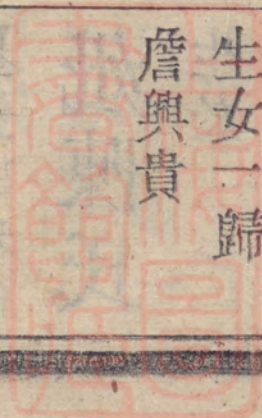 生女一歸
詹興貴